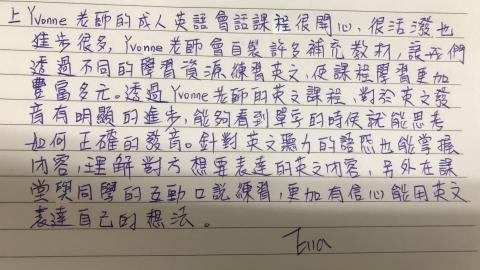 上 Yvonne 老師的成人英語會話課程很開心、很活潑也
進步很多，Yvonne 老師會自製許多補充教材，讓我們
透過不同的學習資源練習英文，使課程學習更加
豐富多元。透過 Yvonne 老師的英文課程，對於英文發
音有明顯的進步，能夠看到單字的時候就能思考
如何正確的發音。針對英文聽力的語意也能掌握
內容，理解對方想要表達的英文內容，另外在課
堂與同學的互動口說練習，更加有信心能用英文
表達自己的想法。
Ella